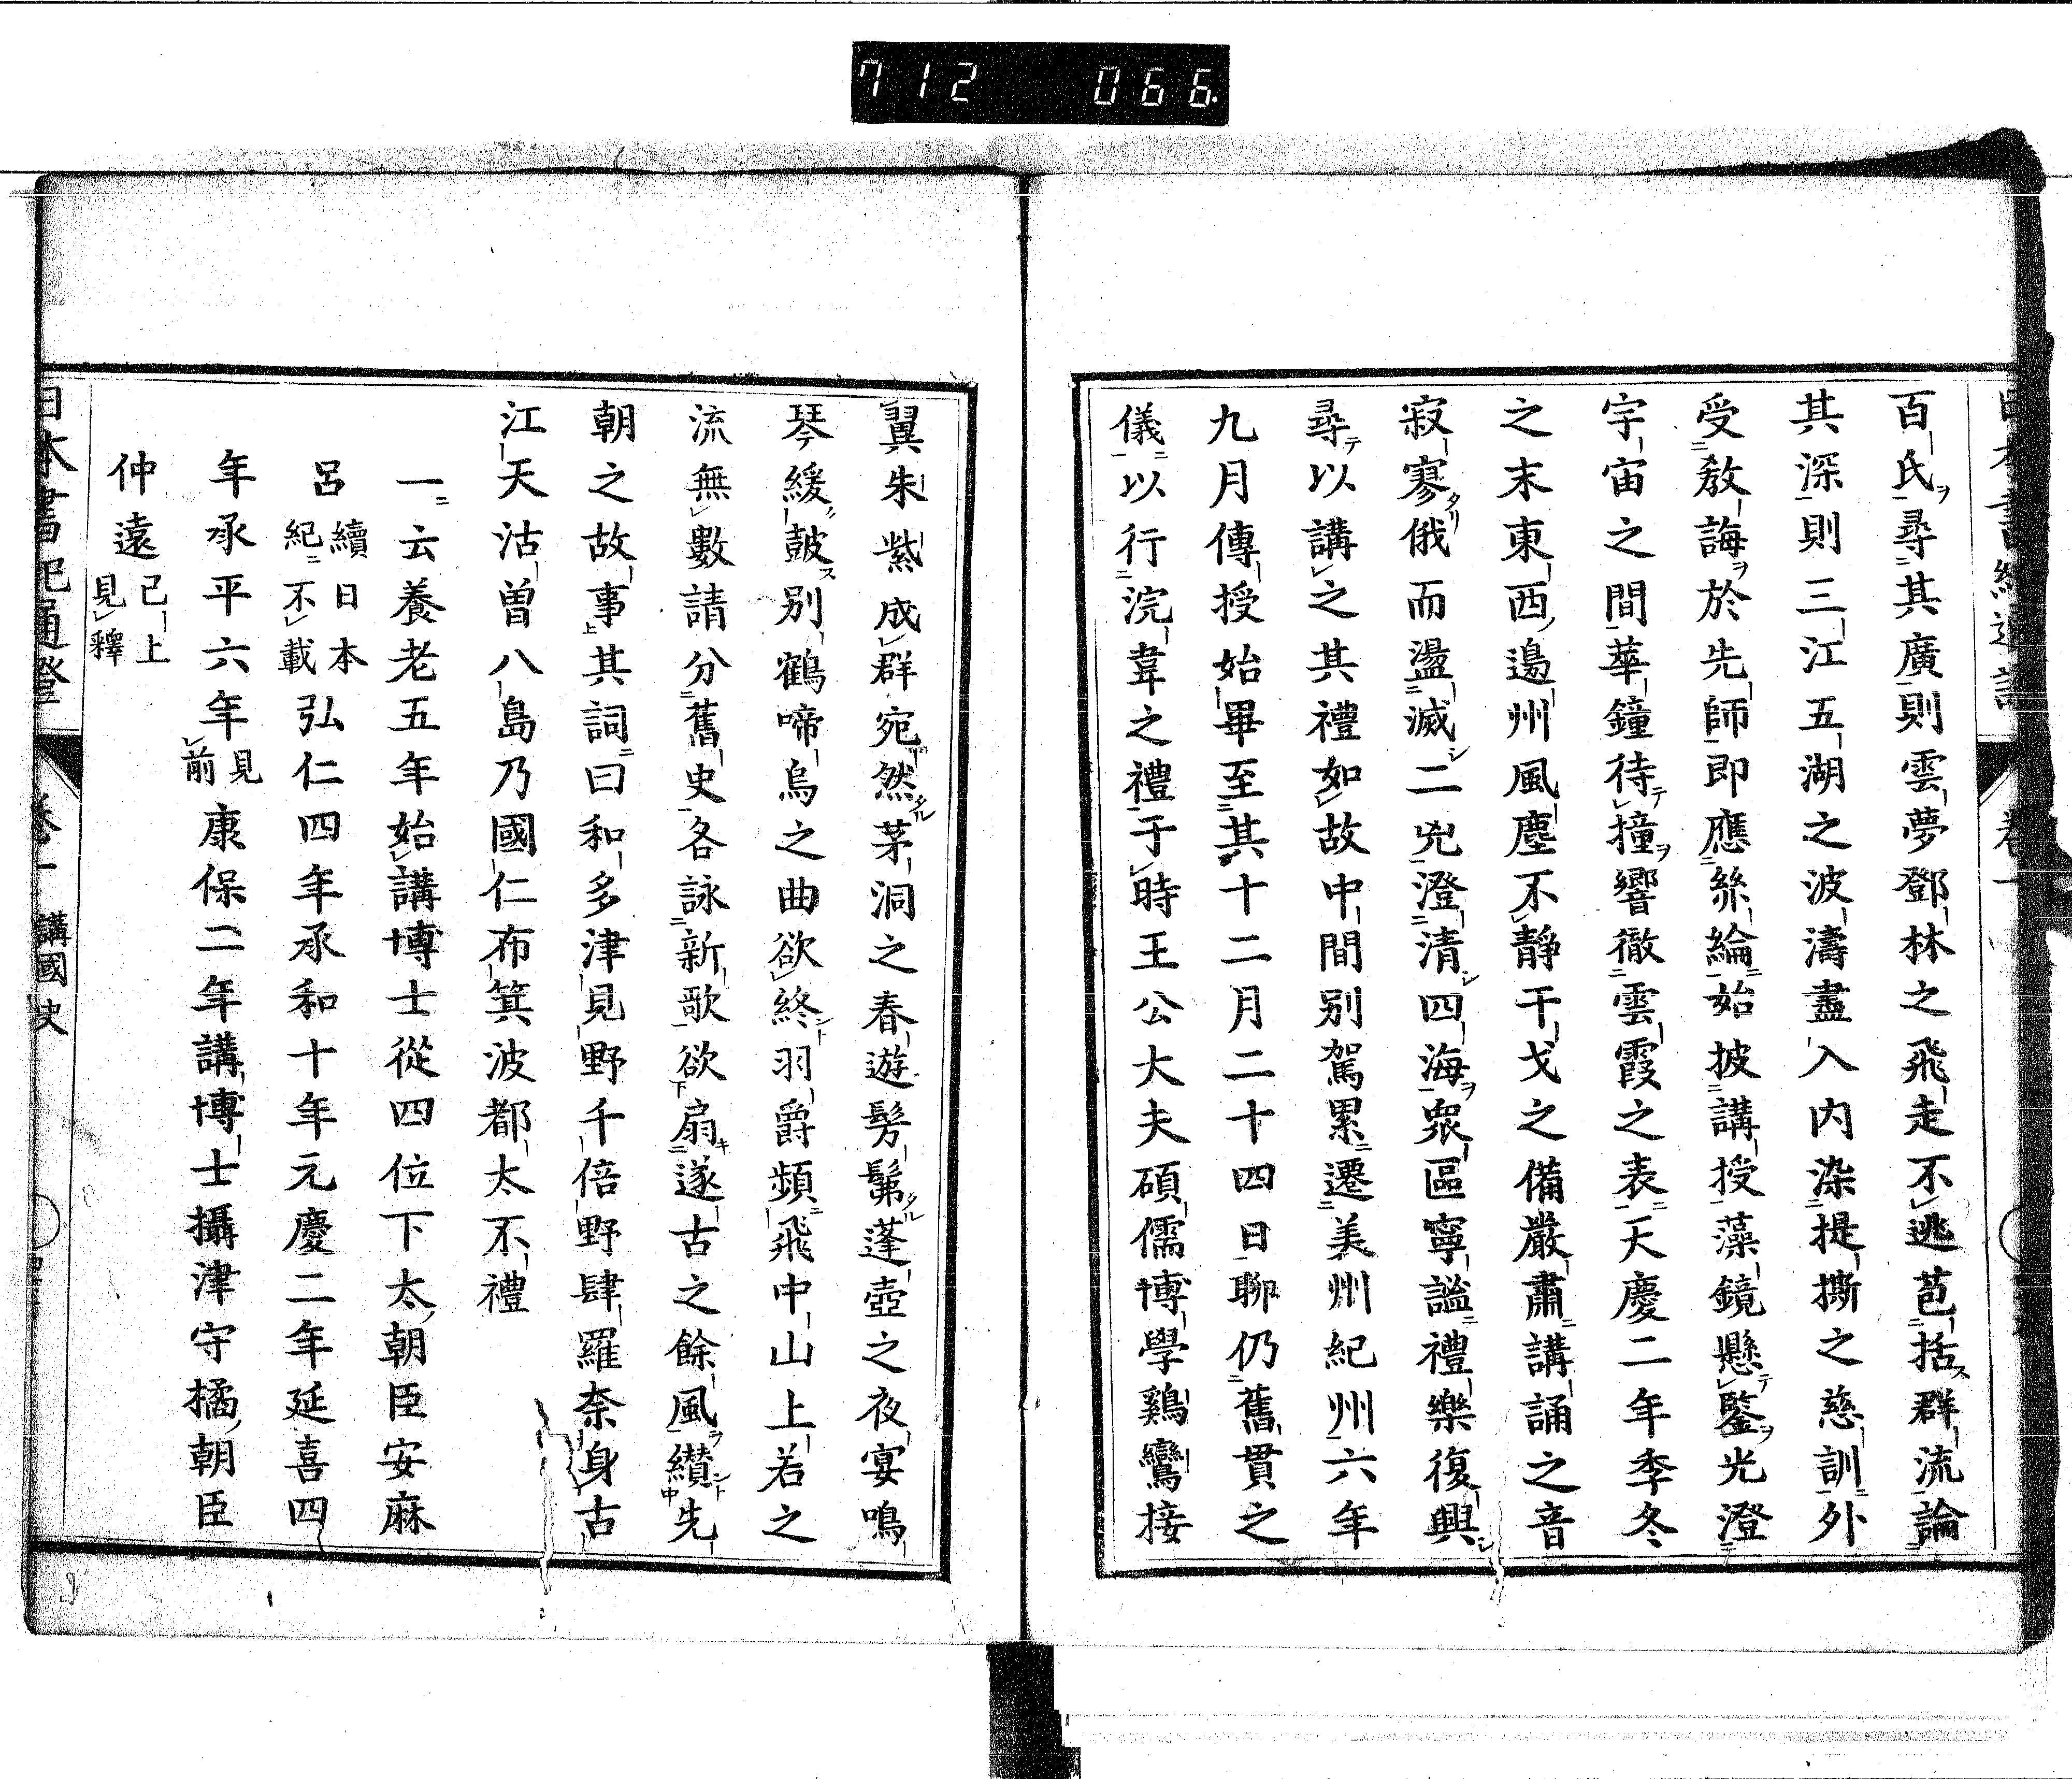 712 066
百氏尋其廣則雲夢鄧林之飛走不逃苞括群流論
其深則三江五湖之波濤盡入内染提撕之慈訓外
受教誨於先師即應絲綸始披講授藻鏡懸鑒光澄
宇宙之間華鐘待撞響徹雲霞之表天慶二年季冬
之末東西邊州風塵不靜干戈之備嚴肅講誦之音
寂寥俄而盪滅二兇澄清四海衆區寧謐禮樂復興
尋以講之其禮如故中間別駕累遷美州紀州六年
九月傳授始畢至其十二月二十四日聊仍舊貫之
儀以行浣韋之禮于時王公大夫碩儒博學鷄鸞接
翼朱紫成群宛然茅洞之春遊髣髴蓬壺之夜宴鳴
琴緩鼓別鶴啼烏之曲欲終羽爵頻飛中山上若之
流無數請分舊史各詠新歌欲扇遂古之餘風纉先
朝之故事其詞曰和多津見野千倍野肆羅奈身古
江天沽曽八島乃國仁布箕波都太不禮
一云養老五年始講博士從四位下太朝臣安麻
呂續日本紀不載弘仁四年承和十年元慶二年延喜四
年承平六年見前康保二年講博士攝津守橘朝臣
仲遠已上見釋
日本書紀通證 卷一 講國史